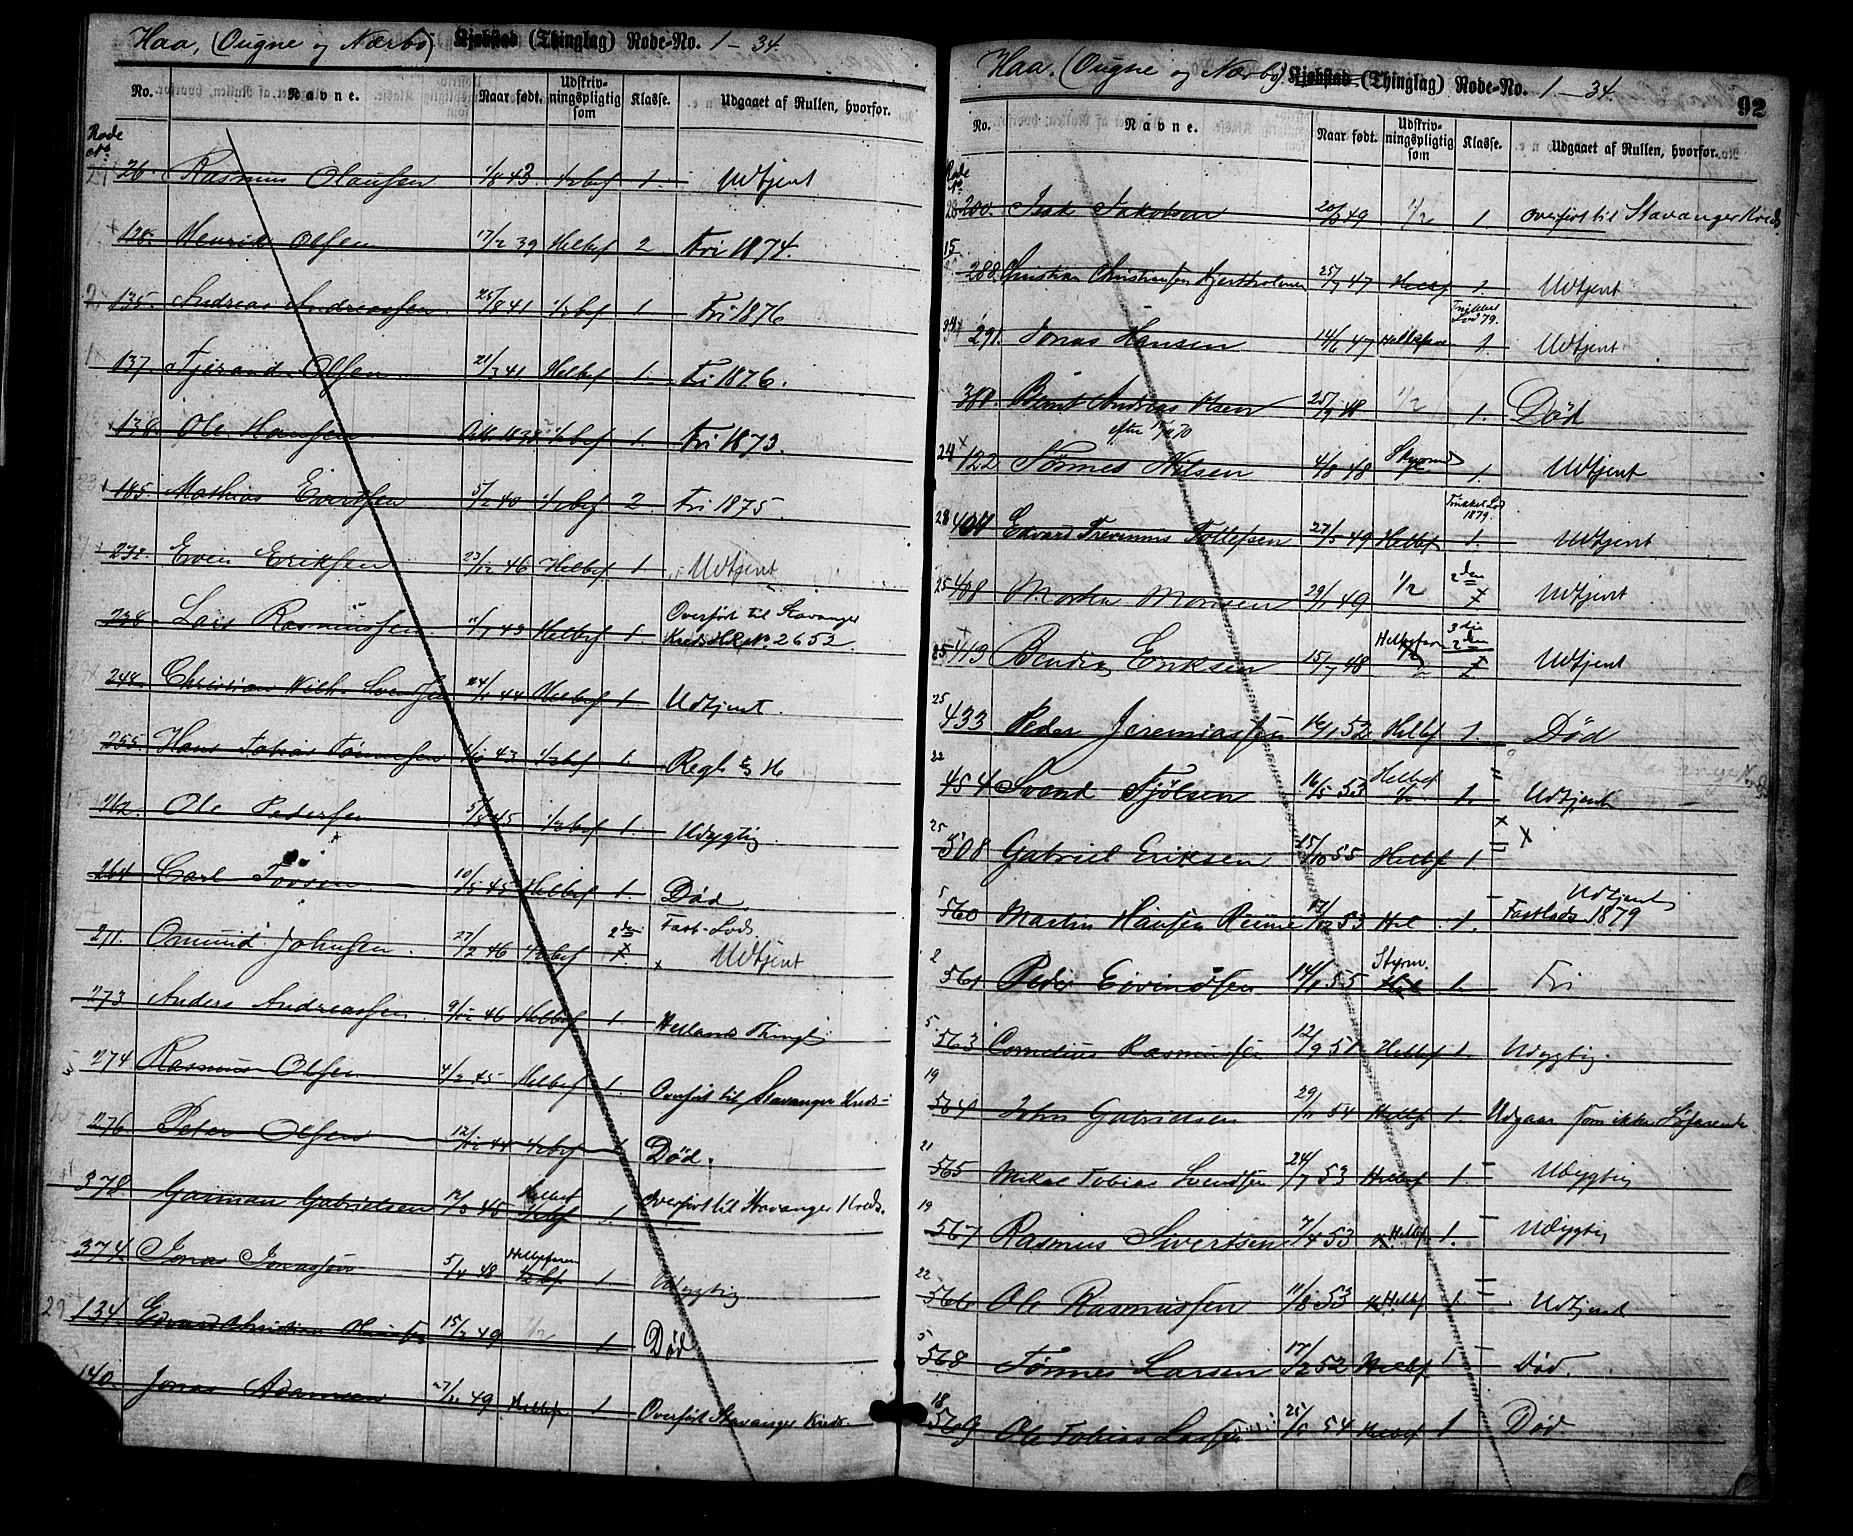 Haa, (Ougne og Nærbø) Kjøbstad (Thinglag) Rode-No. 1-34.
No. Navne. Naar født. Udskrivningspligtig som Klasse. Udgaaet af Rullen, hvorfor.
Rode No.
26. Rasmus Olaussen 1/8 43 1/2 bef 1. Udtjent
128. Henrik Olsen 17/2 39 Helbef 2 Fri 1874.
135. Andreas Andreassen 25/8 41 1/2 bef 1 Fri 1876
137. Tjerand Olsen 21/3 41 Helbef 1. Fri 1876.
138. Ole Hansen 1/2 bef 1. Fri 1873.
185. Mathias Evertsen 5/2 40 1/2 bef 2 Fri 1875.
232. Even Eriksen 23/12 46 Helbef 1 Udtjent
238. Lars Rasmussen 11/7 43 Helbef 1. Overført til Stavanger
Kreds No. 2652.
244. Christian Wilh. Svendsen 24/1 44 Helbef 1 Udtjent.
255. Hans Tobias Tønnesen 43 1/2 bef 1.
262. Ole Pedersen 5/8 45 1/2 bef 1. Udygtig
264. Carl 10/5 45 Helbef 1. Død
271. Omund Johnsen. 27/2 46 1/2 bef 2den Fast-Lods.
x Udtjent
273. Anders Andreassen 9/12 46 Helbef 1 Hellands Thingl
274 Rasmus Olsen 4/2 45 Helbef 1. Overført til Stavanger Kreds
276. Peter Olsen 12/12 44 1/2 bef 1 Død.
378. Gabrielsen 12/3 45 Helbef 1/2 bef 1. Overført til Stavanger Kreds.
374. Jonas Jonassen 5/4 48 Helbefaren 1/2 bef 1 Udygtig
29 134. Edvard Christian 15/2 49 1/2 1 Død
140. Jonas Adamsen 49 Helbef 1. Overført Stavanger Kreds
Haa. (Ougne og Nærbø). Kjøbstad (Thinglag) Rode-No. 1-34.
92
No. Navne. Naar født. Udskrivningspligtig som Klasse. Udgaaet af Rullen, hvorfor.
Rode No.
28 200. Isak Jakobsen 20/2 49 1/2 1. Overført til Stavanger Kreds.
15
288. Christian Christensen Hjertholmen 25/7 47 Helbf 1. Udtjent
291. Jonas Hansen 14/6 47 Helbefaren 1. Udtjent
380. Bernt Andreas Olsen 25/9 48 1/2 1. Død
24 x 122 Tønnes Nilsen 4/8 48 1. Udtjent
28 404 Edvard Tollefsen 27/5 49 Helbf 1. Udtjent
25 408 Morten Monsen 29/1 49 1/2 2den x Udtjent
25 413 Bendix Eriksen 15/7 48 Helbefaren 1/2 3die 2den x Udtjent
25
433 Peder Jeremiassen 16/1 52 Helbf 1. Død
22
454 Svend Tjølsen 16/5 53 Helbef 1/2 1. Udtjent
25
508 Gabriel Eriksen 15/10 55 Helbf 1. x
5
560 Martin Hansen Reime 17/12 53 Hel 1. Udtjent
Fastlods 1879
2
561 Peder Eivindsen 14/1 55 Styrm. 1. Fri
5
563 Cornelius Rasmussen 12/9 51 Helbef 1. Udygtig.
19
564 John Gabrielsen 29/11 54 Helbf 1. Udgaar som ikke Søfarende
21
565 Mikal Tobias Svendsen 24/7 53 Helbef 1 Udygtig
19
567 Rasmus Sivertsen 7/4 53 Helbef 1. Udygtig
22
566 Ole Rasmussen 11/8 53 Helbf 1. Udtjent
5
568 Tønnes Larsen 17/2 52 Helbef 1 Død.
18
569 Ole Tobias Larsen 25/1 54 Helbef 1 Død.